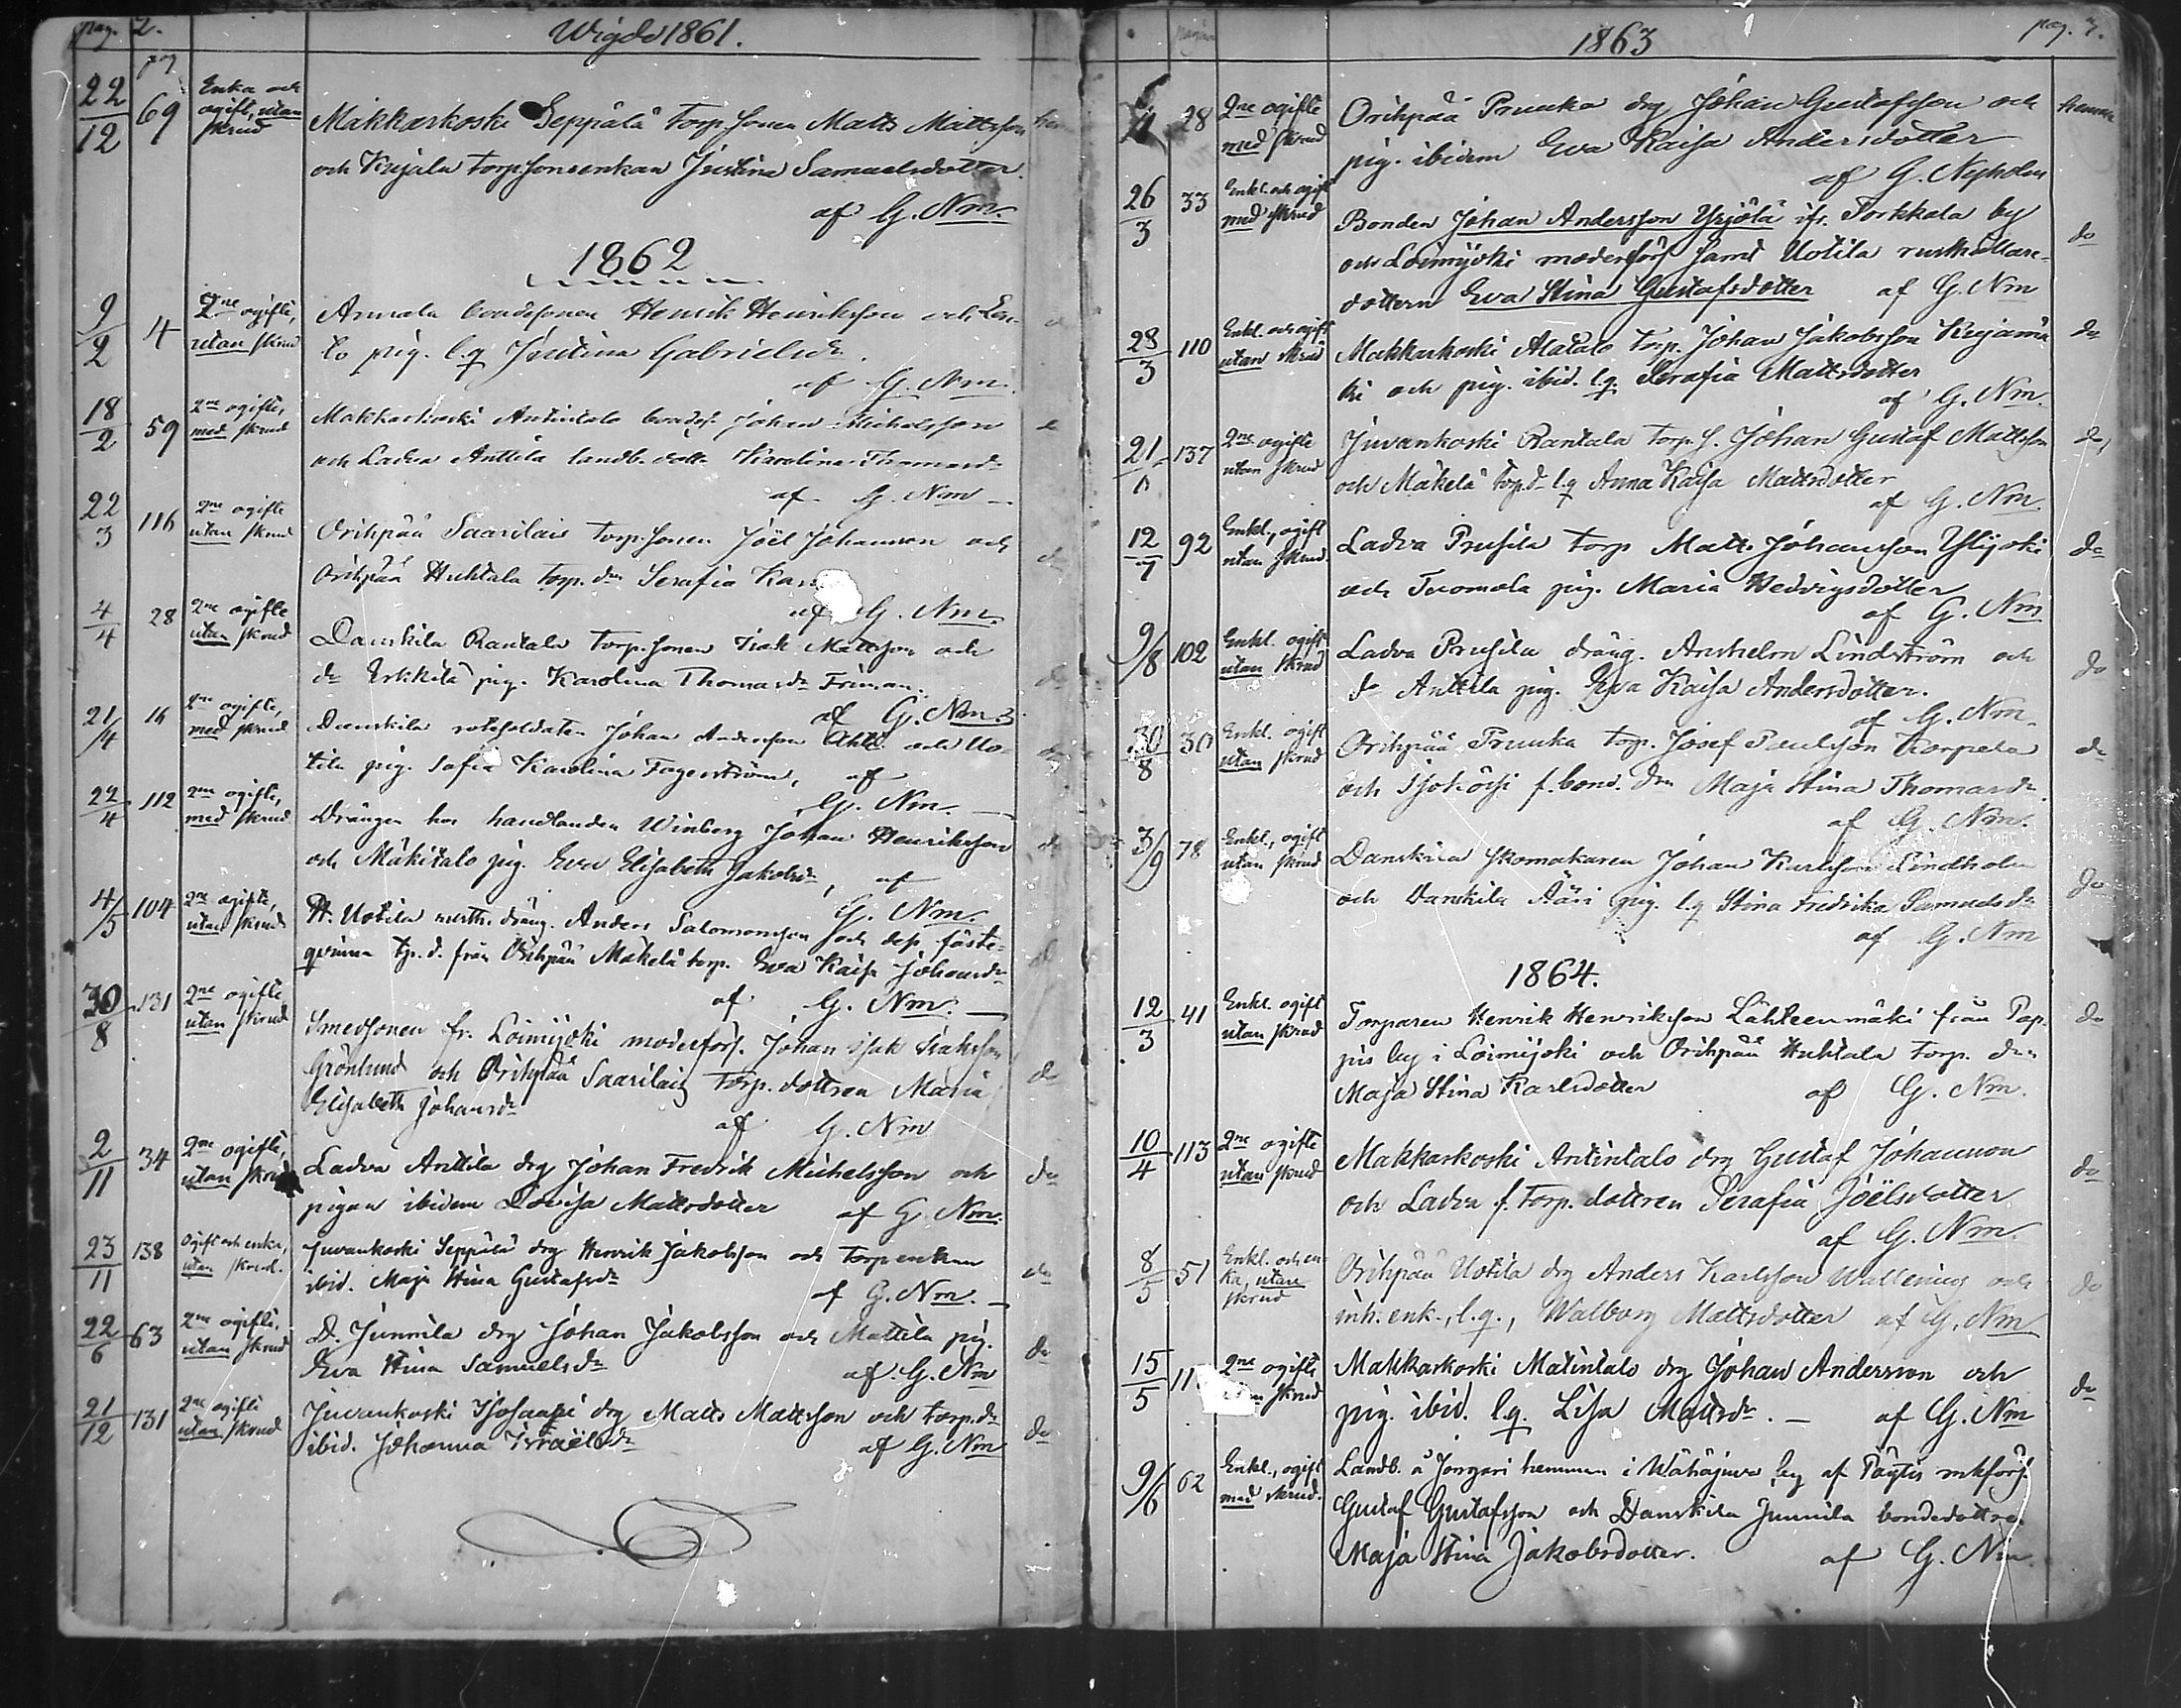 pag. 2.
Wigde 1861.
pag
22/12 69 Enka och ogift, utan skrud
Makkarkoski Seppälä torp. sonen Matts Mattsson
och Kujala torp.sonsenkan Justina Samuelsdotter.
af G. Nm.
1862
9/2 4 2ne ogifte, utan skrud
bondesonen Henrik Henriksson och
to pig. l.q. Justina Gabrielsdr.
af G. Nm.
18/2 59 2ne ogifte, med skrud
Makkarkoski Antintalo bondes. Johan Michelsson
och Ladva Anttila landb. dottr. Karolina Thomasdr
af G. Nm
22/3 116 2ne ogifte utan skrud
Orihpää Saarilais torp.sonen Joël Johansson och
Orihpää Huhtala torp. dn Serafia
af G. Nm.
4/4 28 2ne ogifte utan skrud
Danskila Rantala torp.sonen Isak Mattsson och
do Erkkilä pig. Karolina Thomasdr Friman.
af G. Nm.
21/4 16 2ne ogifte, med skrud
Danskila rotesoldaten Johan Andersson Ahti och Uo-
tila pig. Sofia Karolina Fagerström, af
G. Nm.
22/4 112 2ne ogifte, med skrud
Drängen hos handlanden Winberg Johan Henriksson
och Mäkitalo pig. Eva Elisabeth Jakobsdr, af
G. Nm.
4/5 104 2ne ogifte, utan skrud
H. Uotila rusth. dräng. Anders Salomonsson och dess fäste-
qvinna tp. d. från Orihpää Mäkelä torp. Eva Kaisa Johansdr
af G. Nm.
30/8 131 2ne ogifte utan skrud
Smedsonen fr. Loimijoki moderförs. Johan Isak Isaksson
Grönlund och Orihpää Saarilais torp. dottren Maria
Elisabeth Johansdr
af G. Nm
do
2/11 34 2ne ogifte, utan skrud
Ladva Anttila drg Johan Fredrik Michelsson och
pigan ibidem Lovisa Mattsdotter af G. Nm.
do
23/11 138 Ogift och enka, utan skrud.
Juvankoski Seppälä drg Henrik Jakobsson och torpenkan
ibid. Maja Stina Gustafsdr
af G. Nm.
do
22/6 63 2ne ogifte, utan skrud
D. Junnila drg Johan Jakobsson och Mattila pig.
Eva Stina Samuelsdr af G. Nm
do
21/12 131 2ne ogifte utan skrud
Juvankoski drg Matts Mattsson och torp.dr
ibid. Johanna Israëlsdr af G. Nm
do
1863
pag. 3.
28 2ne ogifte med skrud
Orihpää Prunka drg Johan Gustafsson och
pig. ibidem Eva Kaisa Andersdotter
af G. Nyholm
hemma
26/3 33 Enkl. och ogift med skrud
Bonden Johan Andersson Yrjölä ifr. Porkkala by
och Loimijoki moderförs. samt Uotila rusthållare-
dottern Eva Stina Gustafsdotter af G. Nm
do
28/3 110 Enkl. och ogift utan skrud
Makkarkoski Alatalo torp. Johan Jakobsson Kujanä
ki och pig. ibid. l.q. Serafia Mattsdotter
af G. Nm.
do
21/6 137 2ne ogifte utan skrud
Juvankoski Rantala torp.s. Johan Gustaf Mattsson
och Mäkelä torp.d. l.q Anna Kaisa Mattsdotter
af G. Nm.
do
12/7 92 Enkl., ogift utan skrud.
Ladva Prusila torp Matts Johansson Ylijoki
och Tuomola pig. Maria Hedvigsdotter
af G. Nm
do
9/8 102 Enkl. ogift utan skrud
Ladva Prusila dräng. Anshelm Lindström och
do Anttila pig. Eva Kaisa Andersdotter.
af G. Nm.
do
30/8 30 Enkl. ogift utan skrud
Orihpää Prunka torp. Josef Paulsson Korpela
och Isohörsi f. bond. dn Maja Stina Thomasdr.
af G. Nm.
do
3/9 78 Enkl., ogift utan skrud
Danskila skomakaren Johan Karlsson Lindholm
och Danskila Ääri pig. l.q Stina Fredrika Samuelsdr
af G. Nm
do
1864.
12/3 41 Enkl. ogift utan skrud
Torparen Henrik Henriksson Lähteenmäki från Pap-
pis by i Loimijoki och Orihpää Huhtala torp. dn
Maja Stina Karlsdotter af G. Nm.
do
10/4 113 2ne ogifte utan skrud
Makkarkoski Antintalo drg Gustaf Johansson
och Ladva f. torp. dottren Serafia Joëlsdotter
af G. Nm.
do
8/5 51 Enkl. och en-
ka, utan skrud
Orihpää Uotila drg Anders Karlsson Wallenius och
inh. enk., l.q., Walborg Mattsdotter af G. Nm
do
15/5 11 2ne ogifte skrud
Makkarkoski Matintalo drg Johan Andersson och
pig. ibid. l.q. Lisa Mattsdr. — af G. Nm
do
9/6 62 Enkl., ogift med skrud.
Landb. å Jongari hemman i Wähäjuva by af Pöytis mkförs.
Gustaf Gustafsson och Danskila Junnila bondedottren
Maja Stina Jakobsdotter. af G. Nm.